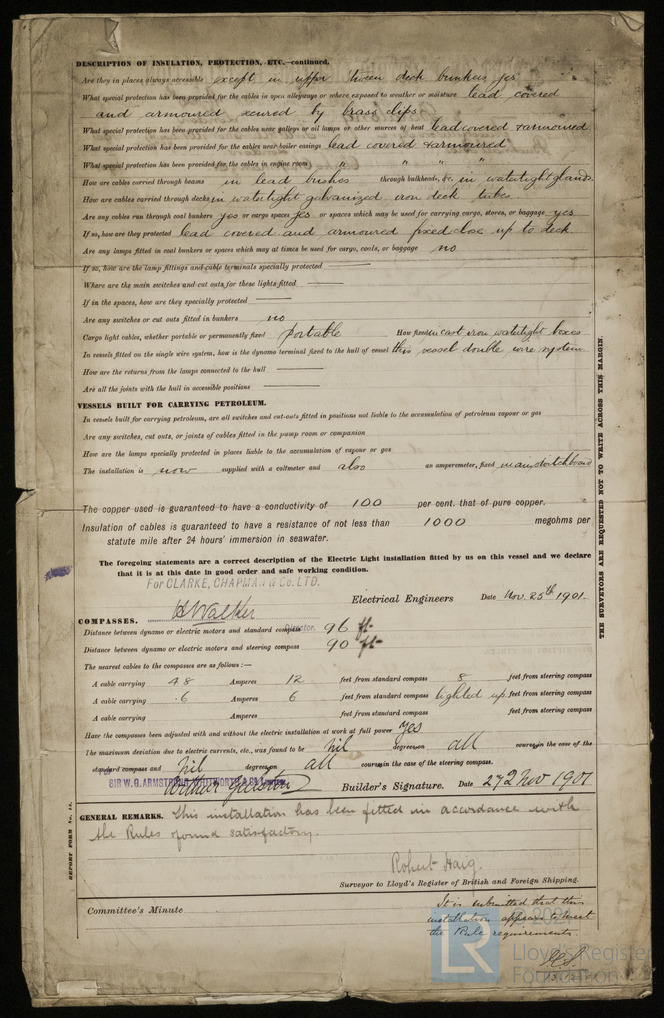 DESCRIPTION OF INSULATION, PROTECTION, ETC.—continued.
Are they in places always accessible except in upper tween deck bunkers yes
What special protection has been provided for the cables in open alleyways or where exposed to weather or moisture lead covered
and armoured secured by brass clips
What special protection has been provided for the cables near galleys or oil lamps or other sources of heat lead covered & armoured
What special protection has been provided for the cables near boiler casings lead covered & armoured
What special protection has been provided for the cables in engine room " " " "
How are cables carried through beams in lead bushes through bulkheads, &c. in watertight glands
How are cables carried through decks in watertight galvanized iron deck tubes
Are any cables run through coal bunkers yes or cargo spaces yes or spaces which may be used for carrying cargo, stores, or baggage yes
If so, how are they protected lead covered and armoured fixed close up to deck
Are any lamps fitted in coal bunkers or spaces which may at times be used for cargo, coals, or baggage no
If so, how are the lamp fittings and cable terminals specially protected —
Where are the main switches and cut outs for these lights fitted —
If in the spaces, how are they specially protected —
Are any switches or cut outs fitted in bunkers no
Cargo light cables, whether portable or permanently fixed portable How fixed in cast iron watertight boxes
In vessels fitted on the single wire system, how is the dynamo terminal fixed to the hull of vessel this vessel double wire system
How are the returns from the lamps connected to the hull —
Are all the joints with the hull in accessible positions —
VESSELS BUILT FOR CARRYING PETROLEUM.
In vessels built for carrying petroleum, are all switches and cut-outs fitted in positions not liable to the accumulation of petroleum vapour or gas
Are any switches, cut outs, or joints of cables fitted in the pump room or companion
How are the lamps specially protected in places liable to the accumulation of vapour or gas
The installation is now supplied with a voltmeter and also an amperemeter, fixed main switchboard
The copper used is guaranteed to have a conductivity of 100 per cent. that of pure copper.
Insulation of cables is guaranteed to have a resistance of not less than 1000 megohms per
statute mile after 24 hours' immersion in seawater.
The foregoing statements are a correct description of the Electric Light installation fitted by us on this vessel and we declare
that it is at this date in good order and safe working condition.
For CLARKE, CHAPMAN & Co. LTD.
H Walker Electrical Engineers Date Nov. 25th 1901.
Director.
COMPASSES.
Distance between dynamo or electric motors and standard compass 96 ft
Distance between dynamo or electric motors and steering compass 90 ft
The nearest cables to the compasses are as follows:—
A cable carrying 48 Amperes 12 feet from standard compass 8 feet from steering compass
A cable carrying .6 Amperes 6 feet from standard compass lighted up feet from steering compass
A cable carrying Amperes feet from standard compass feet from steering compass
Have the compasses been adjusted with and without the electric installation at work at full power yes
The maximum deviation due to electric currents, etc., was found to be nil degrees on all courses in the case of the
standard compass and nil degrees on all courses in the case of the steering compass.
For
SIR W. G. ARMSTRONG WHITWORTH & Co
Builder's Signature. Date 27 Nov 1901
GENERAL REMARKS. This installation has been fitted in accordance with
the Rules & found satisfactory.
Robert Haig.
Surveyor to Lloyd's Register of British and Foreign Shipping.
Committee's Minute
It is submitted that this
installation appears to meet
the Rule requirements.
THE SURVEYORS ARE REQUESTED NOT TO WRITE ACROSS THIS MARGIN.
REPORT FORM No. 14.
LR
Lloyd's Register
Foundation